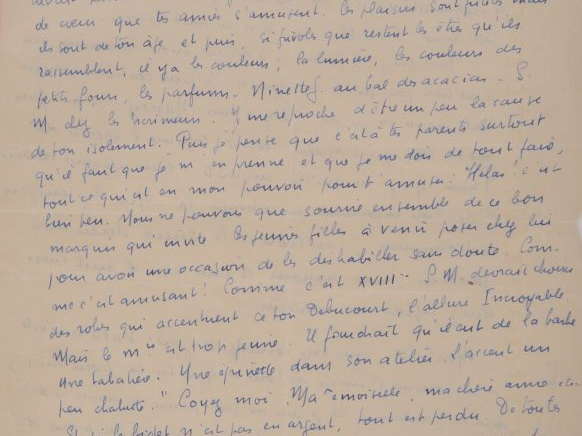 de cœur que tes amies s'amusent. Les plaisirs sont
ils sont de ton âge et puis, si frivoles que restent les êtres qu'ils
rassemblent, il y a les couleurs, la lumière, les couleurs des
petits fours, les parfums. au bal des acacias. S.
M. chez les escrimeurs. Je me reproche d'être un peu la cause
de ton isolement. Puis je pense que c'est à tes parents surtout
qu'il faut que je m'en prenne et que je me dois de tout faire,
tout ce qui est en mon pouvoir pour t'amuser. Hélas! c'est
bien peu. Nous ne pouvons que sourire ensemble de ce bon
marquis qui invite les jeunes filles à venir poser chez lui
pour avoir une occasion de les déshabiller sans doute. Com-
me c'est amusant! Comme c'est XVIII. S. M. devrait choisir
des robes qui accentuent ce ton Debucourt, l'allure Incroyable.
Mais le mis est trop jeune. Il faudrait qu'il eut de la barbe
Une tabatière. Une épinette dans son atelier. L'accent un
peu chabuté. "Coyez moi, Ma'emoiselle, ma chère amie etc
Et si le bidet n'est pas en argent, tout est perdu. De toutes